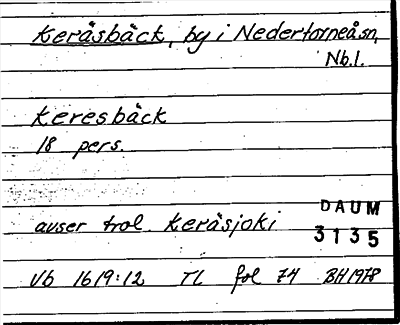 Keräsbäck, by i Nedertorneå sn,
Nb.l.
Keresbäck
18 pers.
avser trol. Keräsjoki
DAUM
3135
Vb 1619:12 TL fol 74 BH 1978